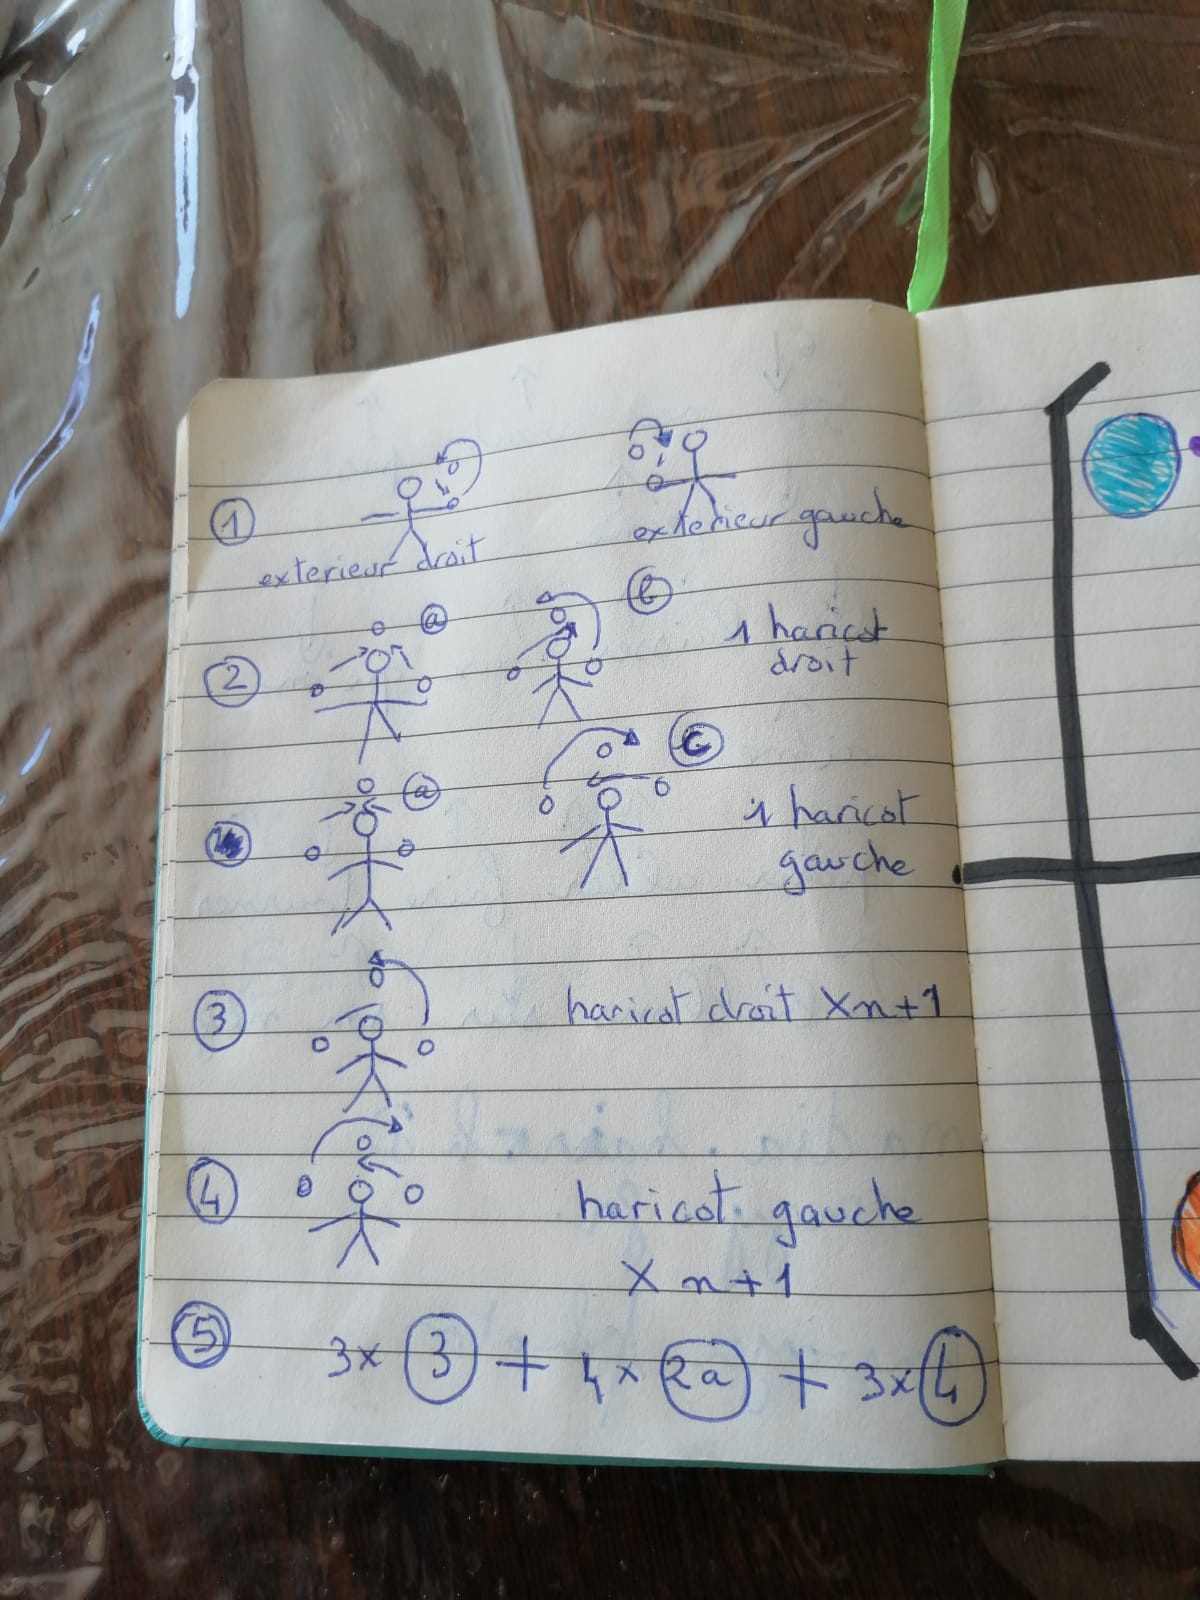 1
exterieur droit
exterieur gauche
2
a
b
1 haricot
droit
a
c
1 haricot
gauche
3
haricot droit Xn+1
4
haricot gauche
X n+1
5
3x 3 + 4x 2a + 3x 4